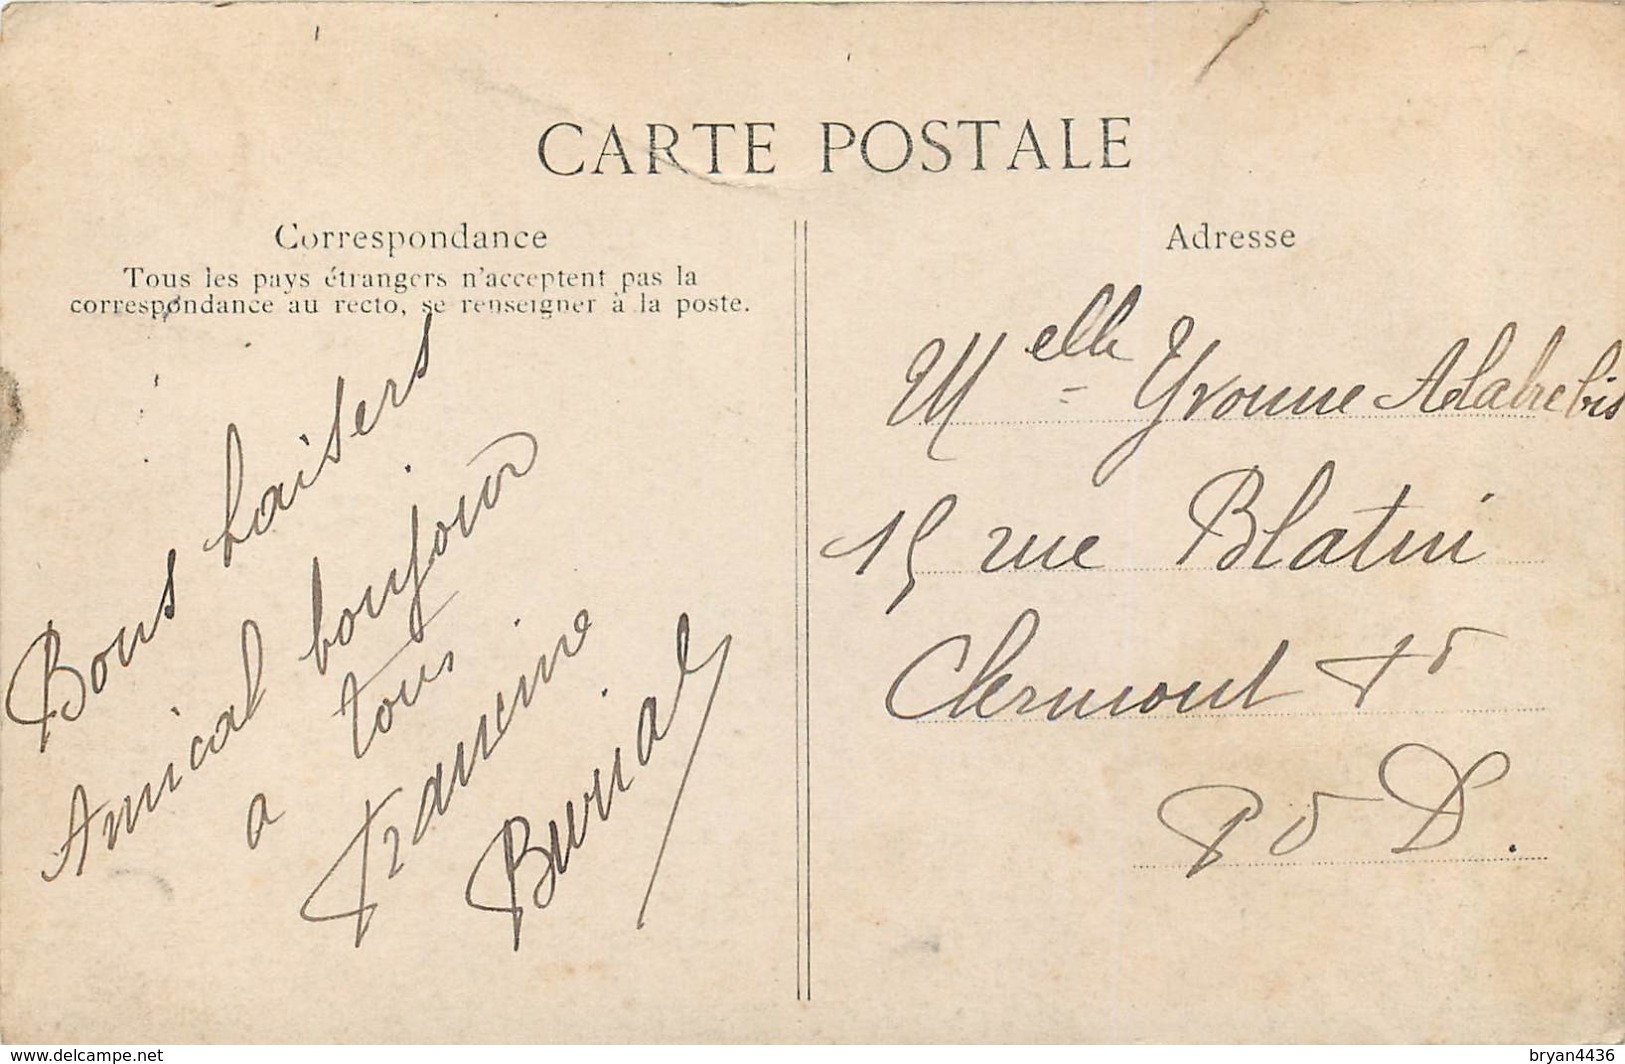 CARTE POSTALE
Correspondance
Tous les pays étrangers n'acceptent pas la
correspondance au recto, se renseigner à la poste.
Bons baisers
Amical bonjour
a tous
Francine
Adresse
Melle Yvonne
15 rue Blatin
Clermont Fd
P d D.
www.delcampe.net
bryan4436